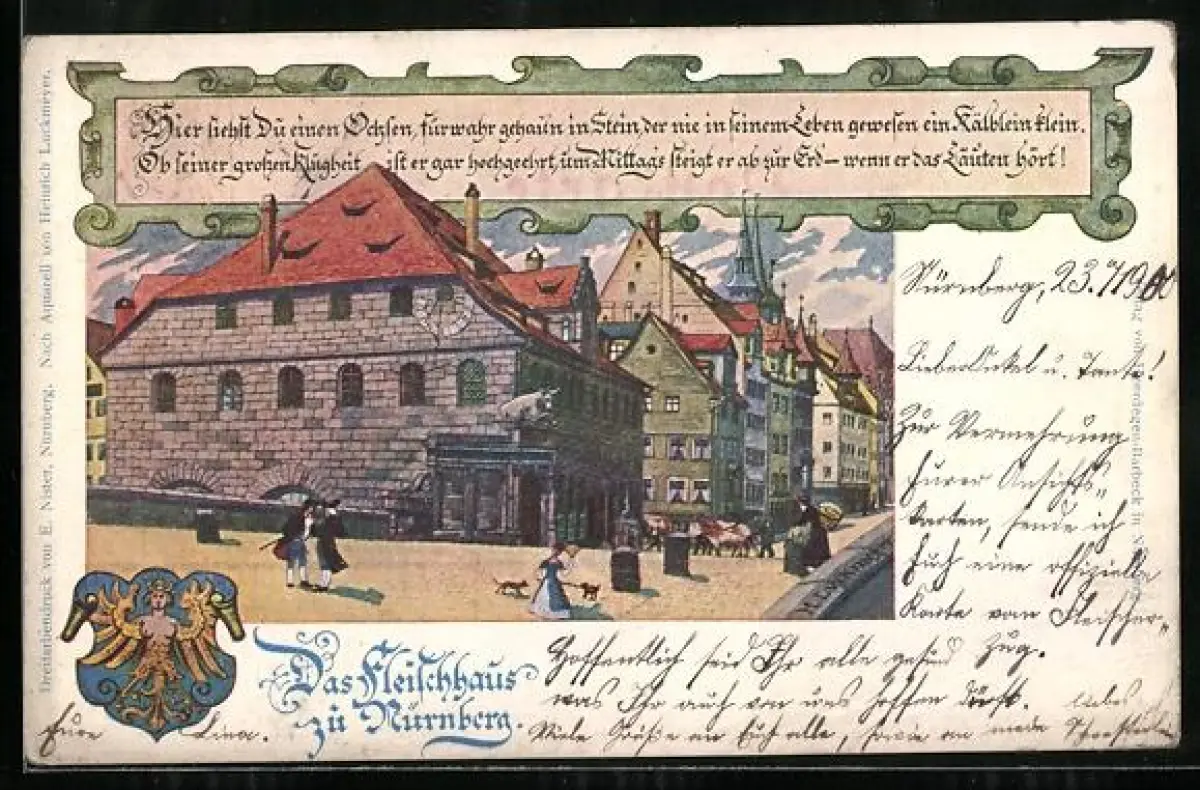 Hier siehst Du einen Ochsen, fürwahr gehau'n in Stein, der nie in seinem Leben gewesen ein Kälblein klein.
Ob seiner großen Klugheit ist er gar hochgeehrt, um Mittags steigt er ab zur Erd – wenn er das Läuten hört!
Dreifarbendruck von E. Nister, Nürnberg. Nach Aquarell von Heinrich Luckmeyer.
Nürnberg, 23.7/190
Lieber Onkel u. Tante!
Zur Vermehrung
Eurer Ansichts„
karten, sende ich
Euch eine offizielle
Karte vom Fleischer„
Zug.
Hoffentlich seid Ihr alle gesund
was Ihr auch von uns hoffen dürft.
Viele Grüße an Euch alle, sowie an
Das Fleischhaus
zu Nürnberg.
Eure Lina.